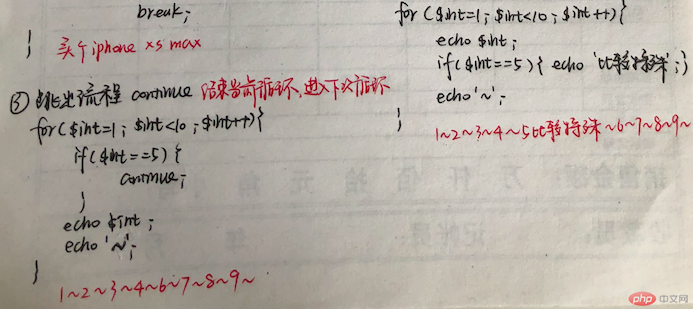 break;
}
买个iphone xs max
③ 跳出流程 continue 结束当前循环,进入下次循环
for($int=1; $int<10; $int++){
if($int==5){
continue;
}
echo $int;
echo '~';
}
1~2~3~4~6~7~8~9~
for($int=1; $int<10; $int++){
echo $int;
if($int==5){ echo '比较特殊';}
echo '~';
}
1~2~3~4~5比较特殊~6~7~8~9~
php 中文网